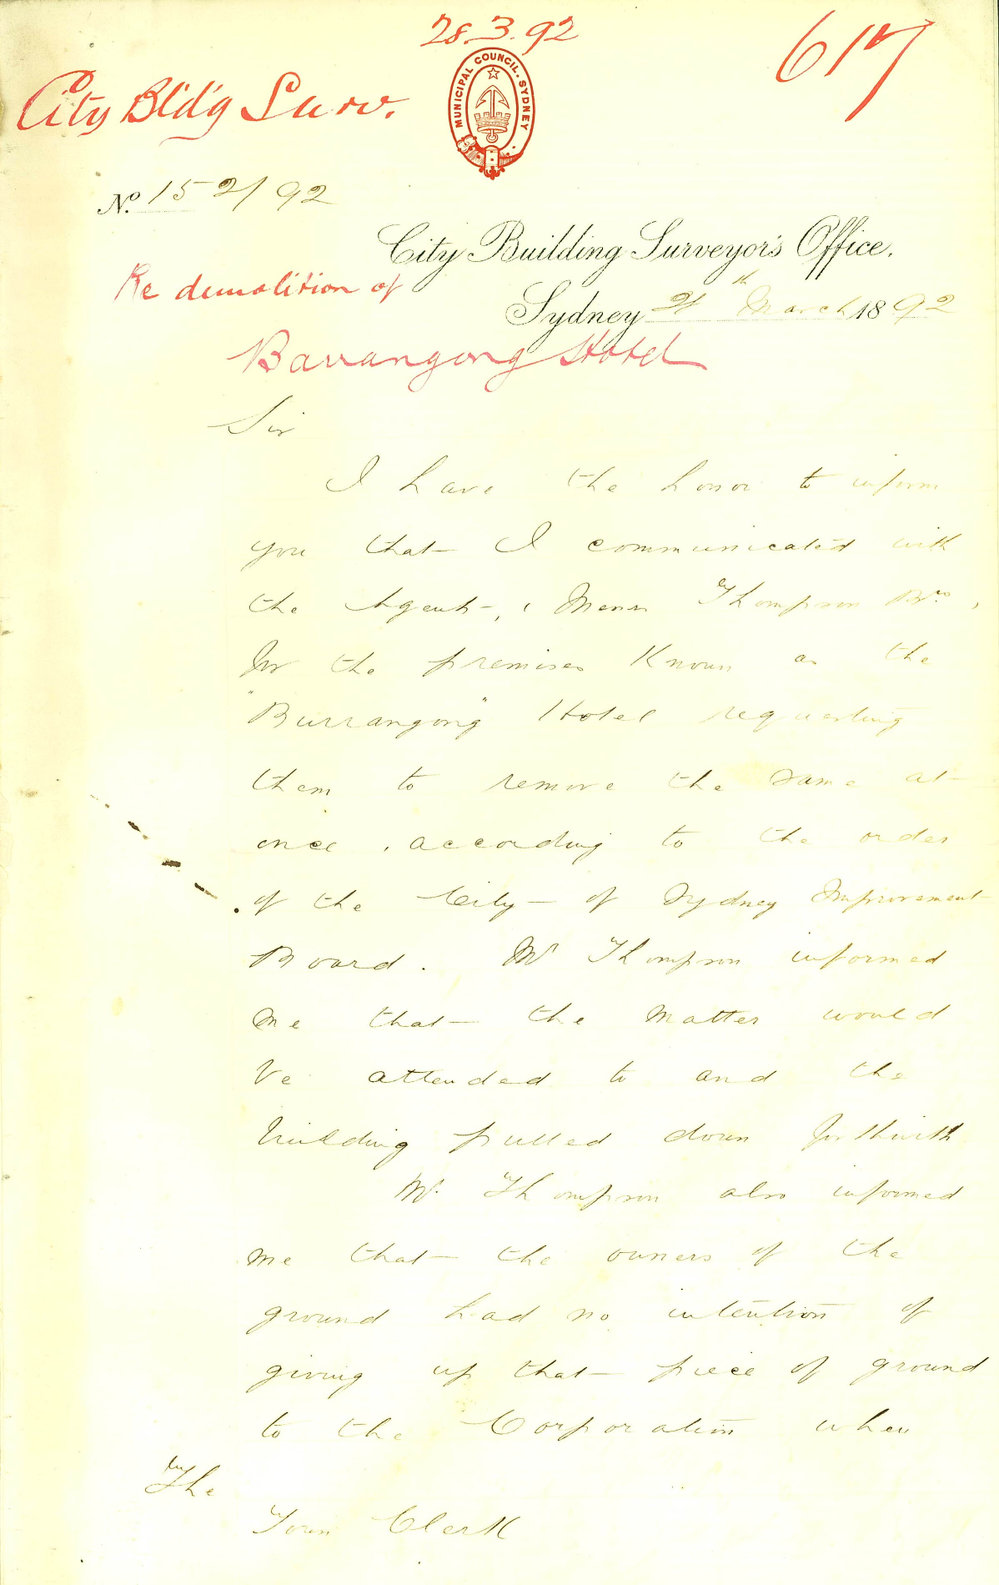 28.3.92
617
City Bld'g Surv.
MUNICIPAL COUNCIL. SYDNEY
No. 152/92
City Building Surveyor's Office.
Re demolition of
Sydney 21th March 1892
Barrangong Hotel
Sir
I have the honor to inform
you that I communicated with
the Agents, Messrs Thompson Bros,
for the premises known as the
"Burrangong" Hotel requesting
them to remove the same at
once, according to the order
of the City of Sydney Improvement
Board. Mr Thompson informed
me that the matter would
be attended to and the
building pulled down forthwith
Mr. Thompson also informed
me that the owners of the
ground had no intention of
giving up that piece of ground
to the Corporation when
The
Town Clerk